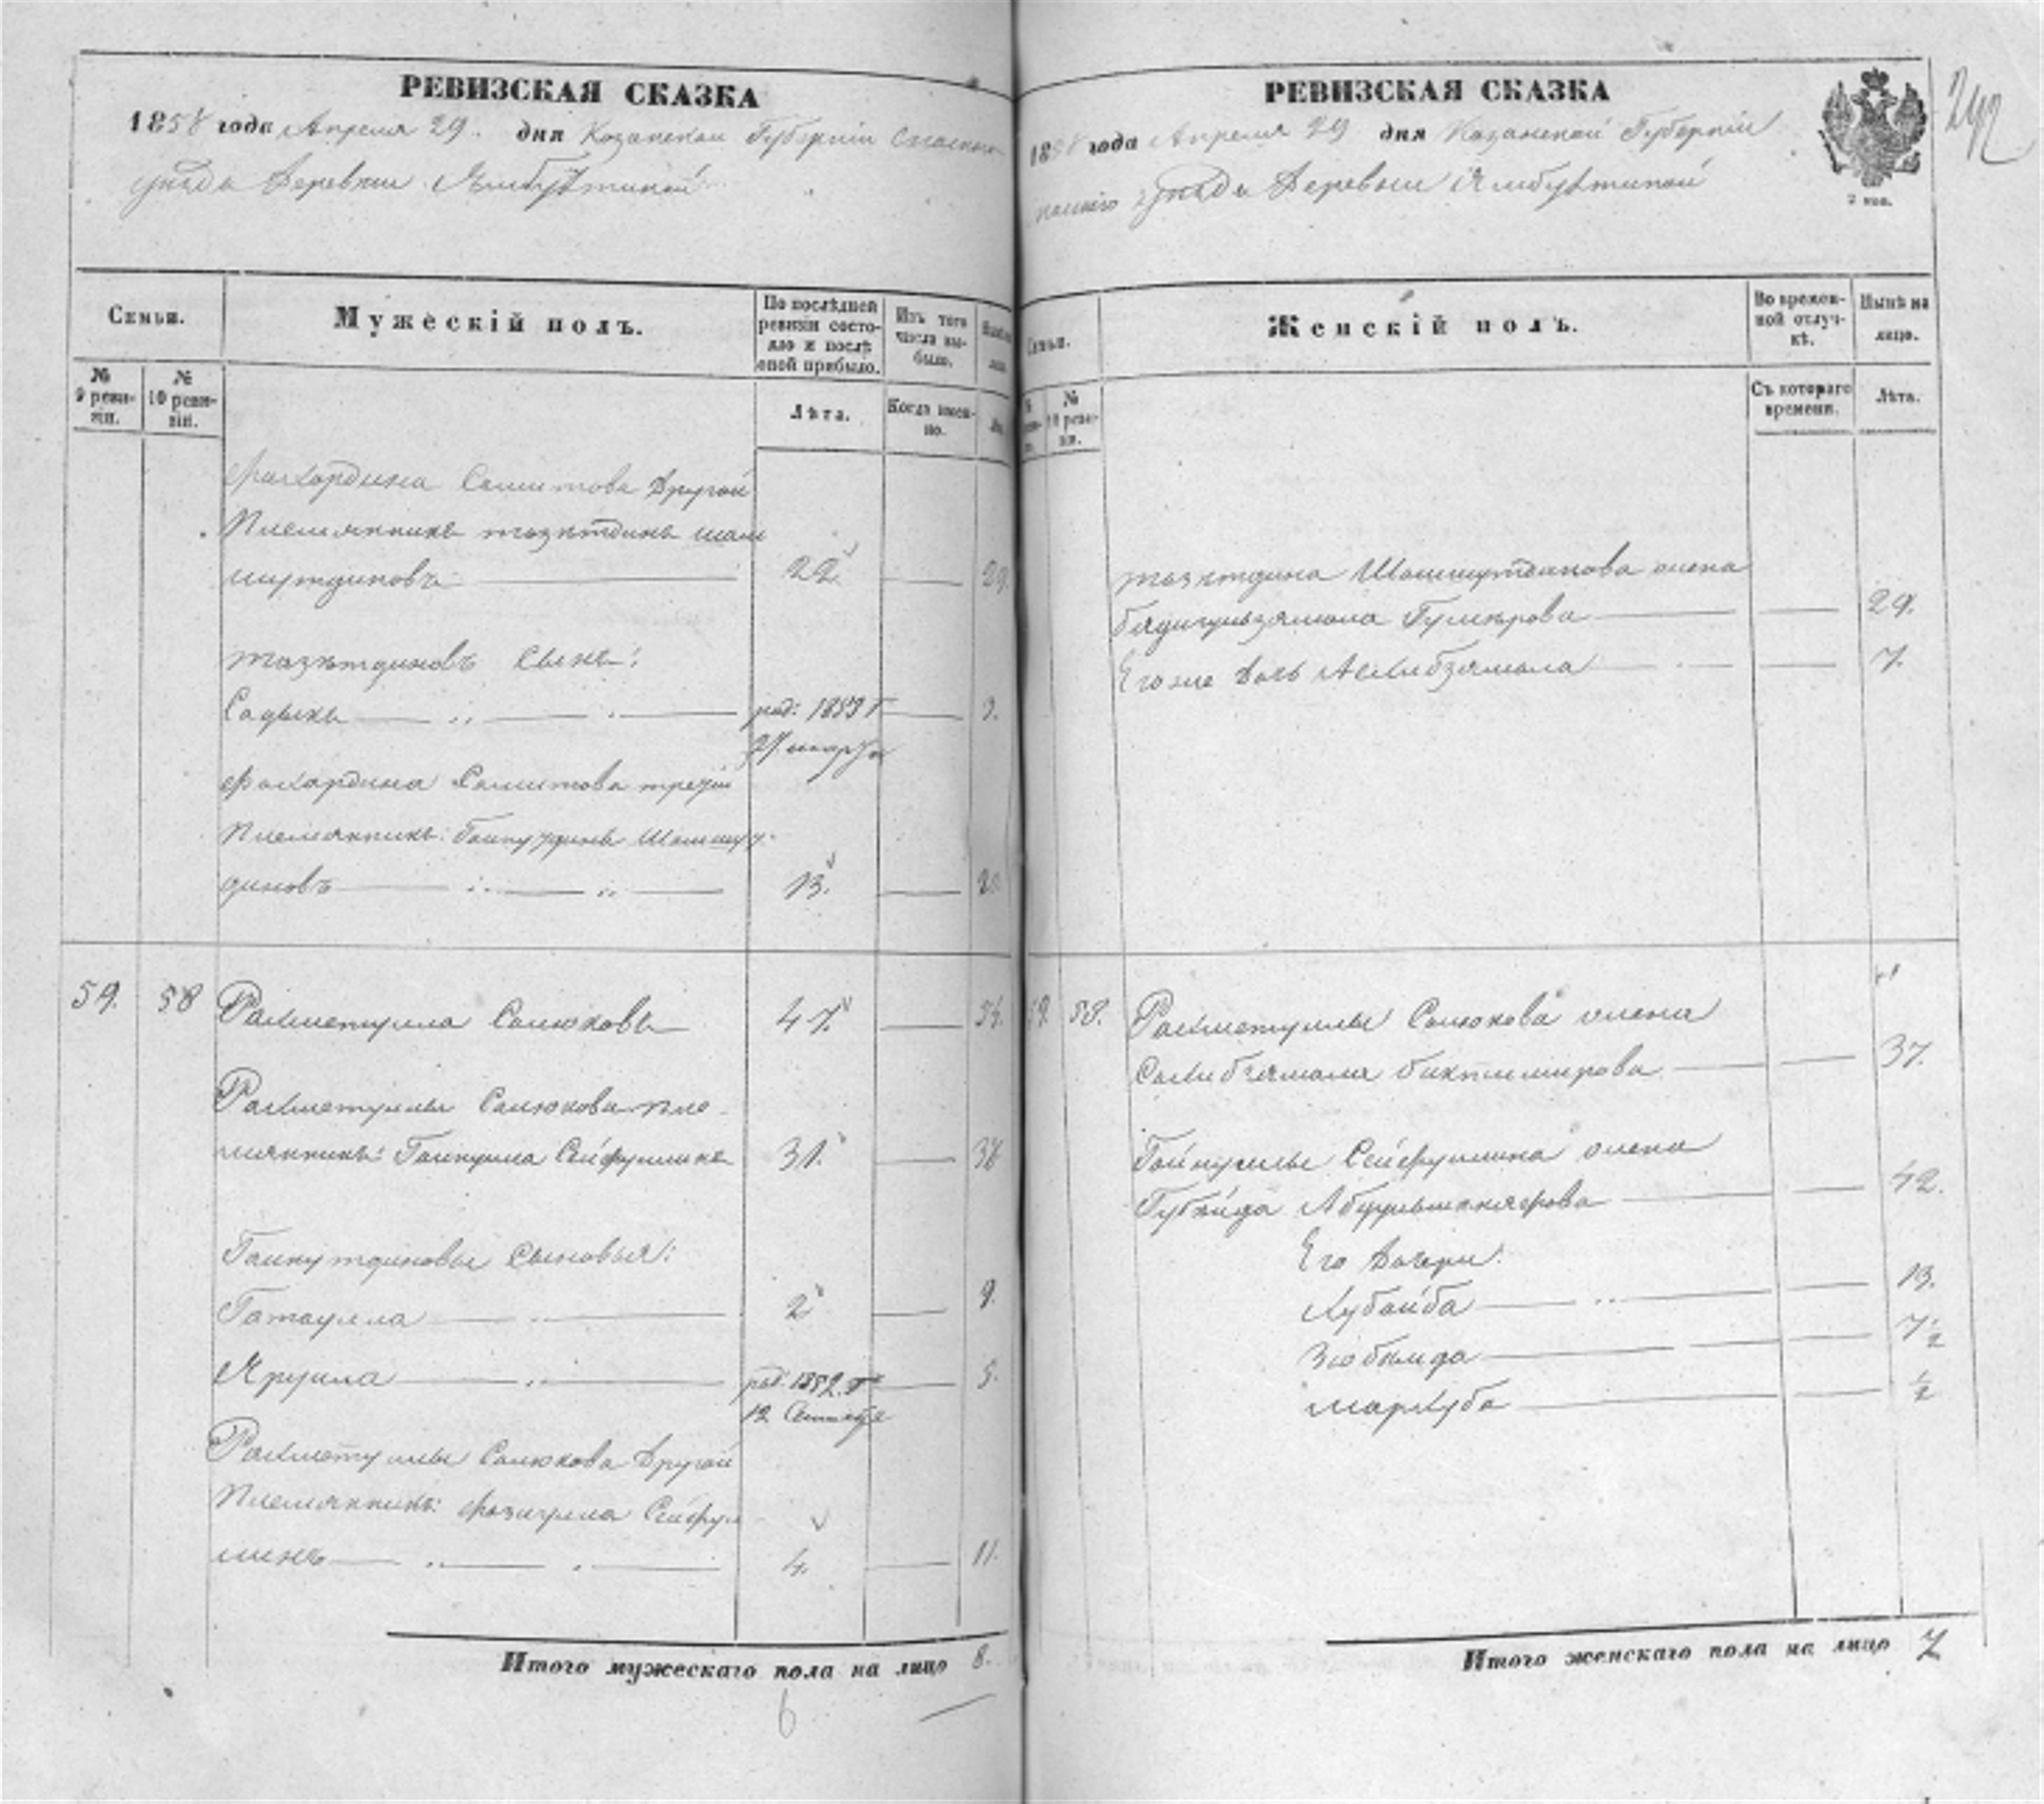 РЕВИЗСКАЯ СКАЗКА
1858 года Апреля 29 дня Казанской Губернiи Спаскаго
уѣзда Деревни Ямбухтиной
Семьи.
Мужескiй полъ.
По послѣдней ревизiи состояло и послѣ оной прибыло.
Изъ того числа выбыло.
№ 9 ревизiи.
№ 10 ревизiи.
Лѣта.
Когда именно.
Фахардина Самитова Другой
Племянникъ тазетдинъ шам
мутдиновъ 22 29
тазетдиновъ Сынъ:
Садыкъ род: 1853 г
27 марта
Фахардина Самитова третiй
Племянникъ: Гайнутдинъ Шаммут
диновъ 13. 20
59. 58 Рахметулла Салюковъ 47. 54.
Рахметуллы Салюкова пле
мянникъ: Гайнулла Сейфуллинъ 31. 38
Гайнутдиновы Сыновья:
Гатаулла 2 9.
Ярулла род. 1852 г 5.
12 Сентября
Рахметуллы Салюкова Другой
Племянникъ: Фазулла Сейфул
линъ 4. 11.
Итого мужескаго пола на лицо 8.
6
РЕВИЗСКАЯ СКАЗКА
1858 года Апреля 29 дня Казанской Губернiи
уѣзда Деревни Ямбухтиной
2 коп.
242
Семьи.
Женскiй полъ.
Во временной отлучкѣ.
Нынѣ на лицо.
№ 10 ревизiи.
Съ котораго времени.
Лѣта.
тазетдина Шаммутдинова жена
бядигулзямала Гумерова 29.
Его же дочь Асхибзямала 7.
59. 58. Рахметуллы Салюкова жена
Сахибзямала биктимирова 37.
Гайнуллы Сейфуллина жена
Губейда 42.
Его дочери:
Хубайба 13.
Зюбейда 7½
мархуба ½
Итого женскаго пола на лицо 7